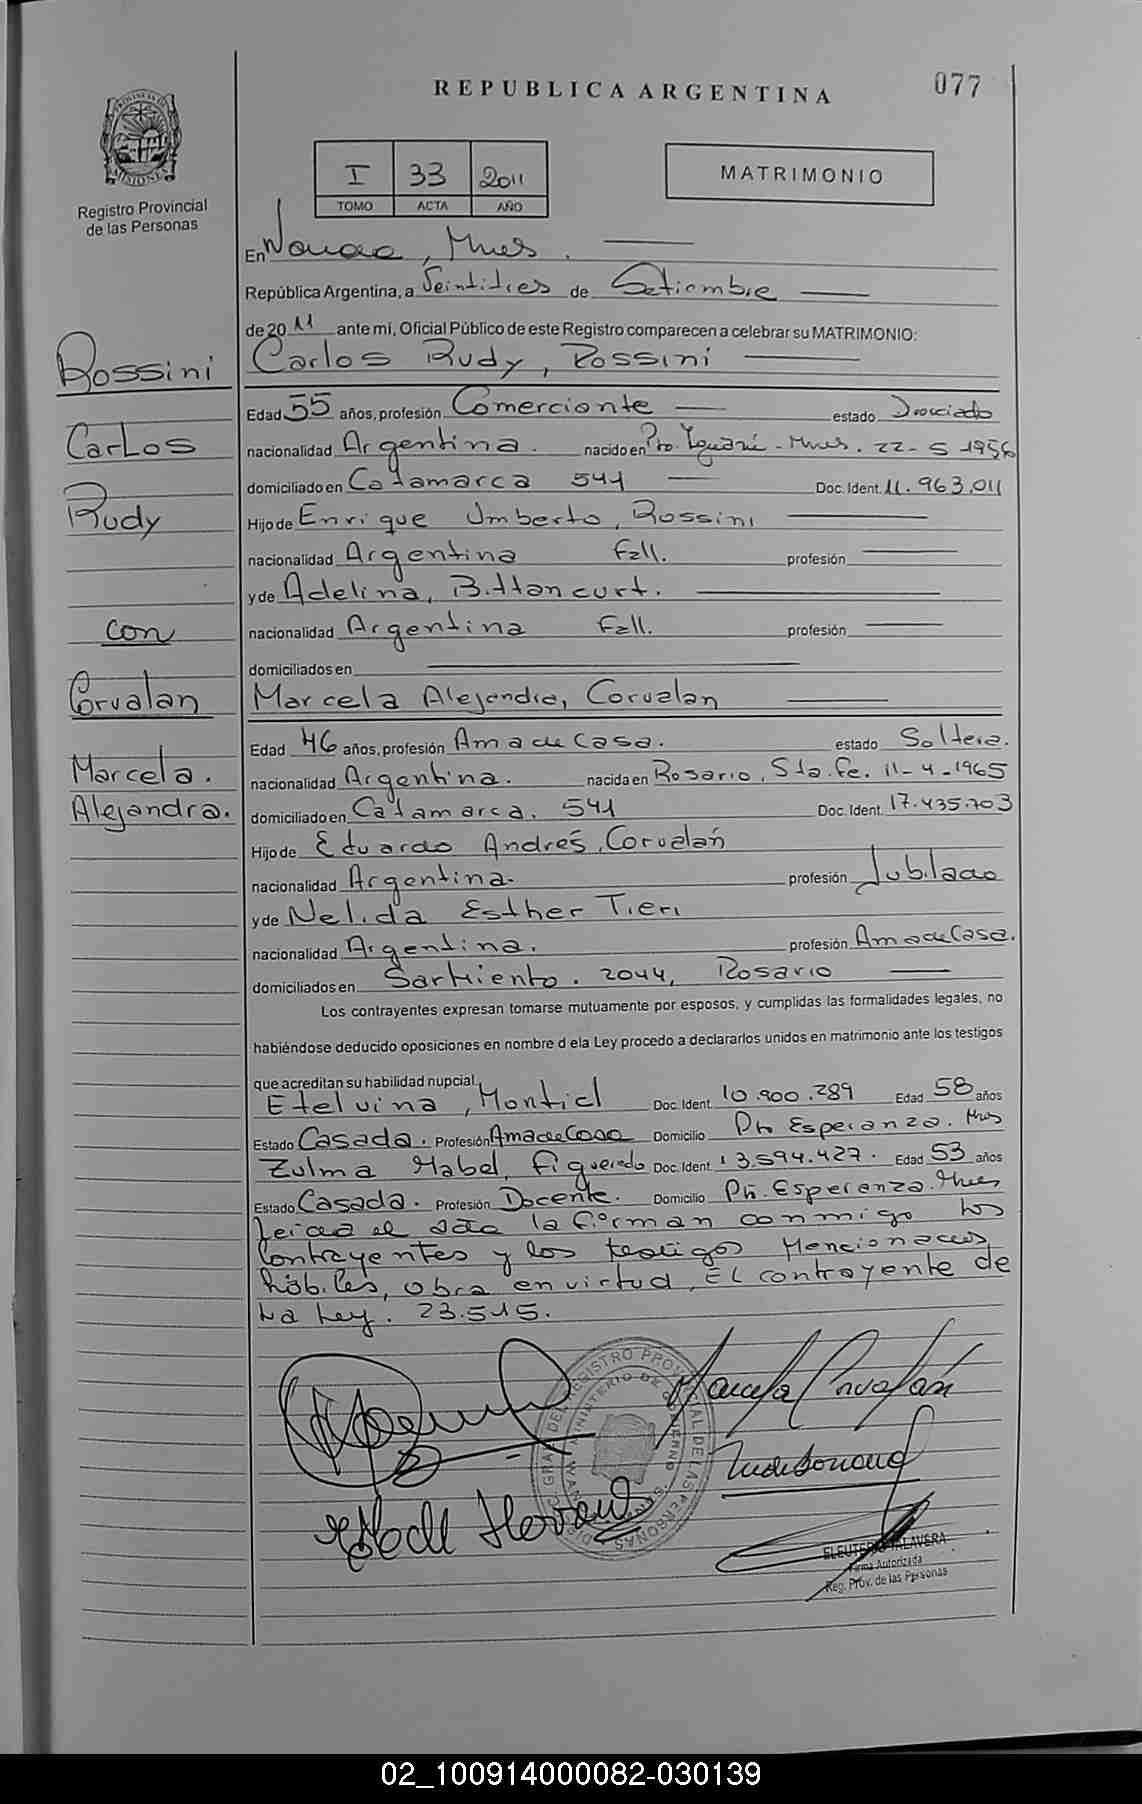 REPUBLICA ARGENTINA
077
PROVINCIA DE MISIONES
Registro Provincial
de las Personas
I 33 2011
TOMO ACTA AÑO
MATRIMONIO
En Wanda, Mnes.
República Argentina, a Veintitres de Setiembre
de 20 11 ante mí, Oficial Público de este Registro comparecen a celebrar su MATRIMONIO:
Rossini
Carlos Rudy, Rossini
Edad 55 años, profesión Comerciante estado Divorciado
Carlos
nacionalidad Argentina. nacido en Pto. Iguazú - Mnes. 22-5-1956
domiciliado en Catamarca 541 Doc. Ident. 11.963.011
Rudy
Hijo de Enrique Umberto, Rossini
nacionalidad Argentina Fall. profesión
y de Adelina, Bittancurt.
con
nacionalidad Argentina Fall. profesión
domiciliados en
Corvalan
Marcela Alejandra, Corvalan
Edad 46 años, profesión Ama de Casa. estado Soltera.
Marcela.
nacionalidad Argentina. nacida en Rosario, Sta. Fe. 11-4-1965
Alejandra.
domiciliado en Catamarca. 541 Doc. Ident. 17.435.703
Hijo de Eduardo Andrés, Corvalán
nacionalidad Argentina. profesión Jubilado
y de Nelida Esther Tieri
nacionalidad Argentina. profesión Ama de Casa.
domiciliados en Sarmiento. 2044, Rosario
Los contrayentes expresan tomarse mutuamente por esposos, y cumplidas las formalidades legales, no
habiéndose deducido oposiciones en nombre d ela Ley procedo a declararlos unidos en matrimonio ante los testigos
que acreditan su habilidad nupcial.
Etelvina, Montiel Doc. Ident. 10.900.289 Edad 58 años
Estado Casada. Profesión Ama de Casa Domicilio Pto Esperanza. Mnes
Zulma Mabel, Figueredo Doc. Ident. 13.594.427. Edad 53 años
Estado Casada. Profesión Docente. Domicilio Pto. Esperanza. Mnes
Leida el acta la firman conmigo los
Contrayentes y los testigos Mencionados
hábiles, obra en virtud, EL contrayente de
La Ley. 23.515.
Marcela Corvalán
ELEUTERIO TALAVERA
Firma Autorizada
Reg. Prov. de las Personas
02_100914000082-030139